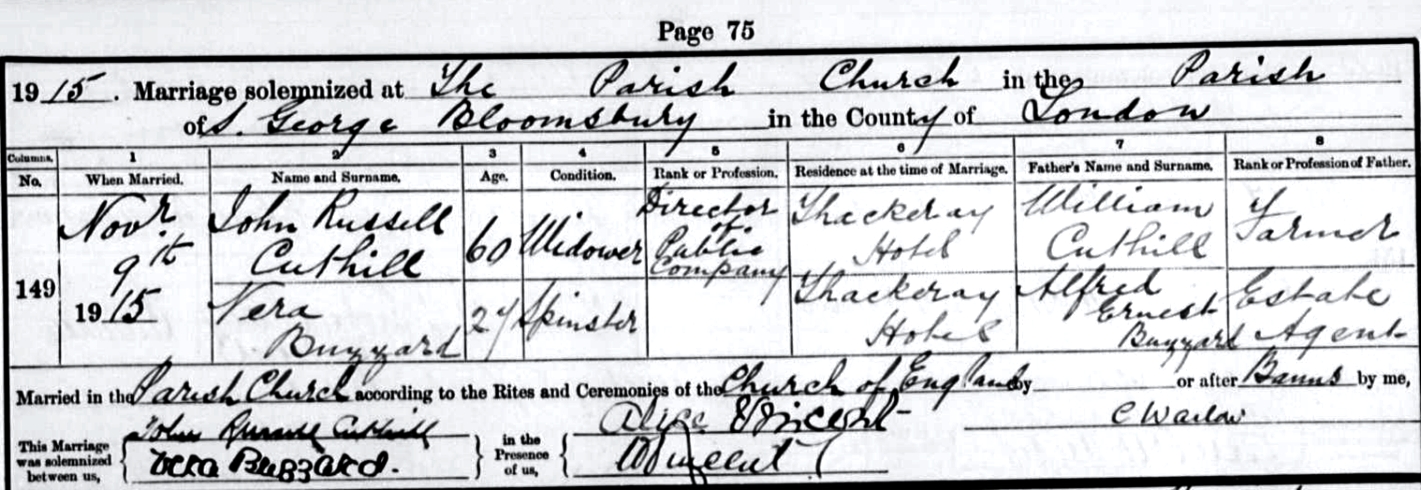 Page 75
1915. Marriage solemnized at The Parish Church in the Parish
of S. George Bloomsbury in the County of London
Columns. 1 2 3 4 5 6 7 8
No. When Married. Name and Surname. Age. Condition. Rank or Profession. Residence at the time of Marriage. Father's Name and Surname. Rank or Profession of Father.
149
Novr.
9th
1915
John Russell
Cuthill
60
Widower
Director
of
Public
Company
Thackeray
Hotel
William
Cuthill
Farmer
Vera
Buzzard
27
Spinster
Thackeray
Hotel
Alfred
Ernest
Buzzard
Estate
Agent
Married in the Parish Church according to the Rites and Ceremonies of the Church of England by or after Banns by me,
This Marriage
was solemnized
between us,
John Russell Cuthill
Vera Buzzard.
in the
Presence
of us,
Alice Vincent
Vincent
C Warlow